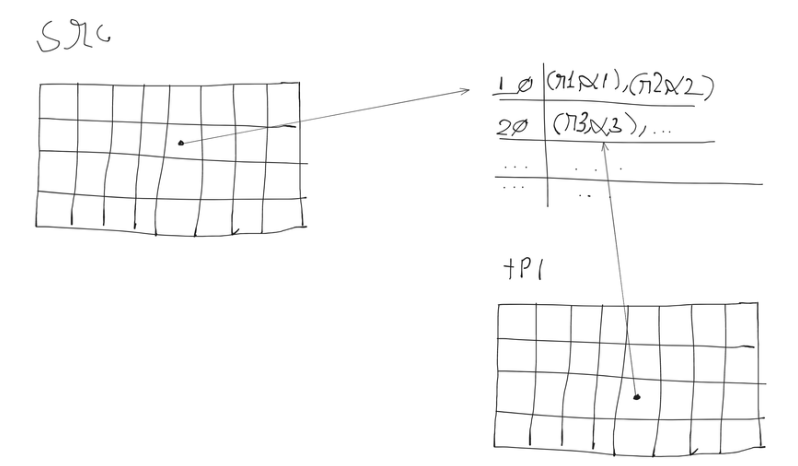 src
1 Ø (r1,α1),(r2,α2)
2Ø (r3,α3),...
... ...
... ..
tpl